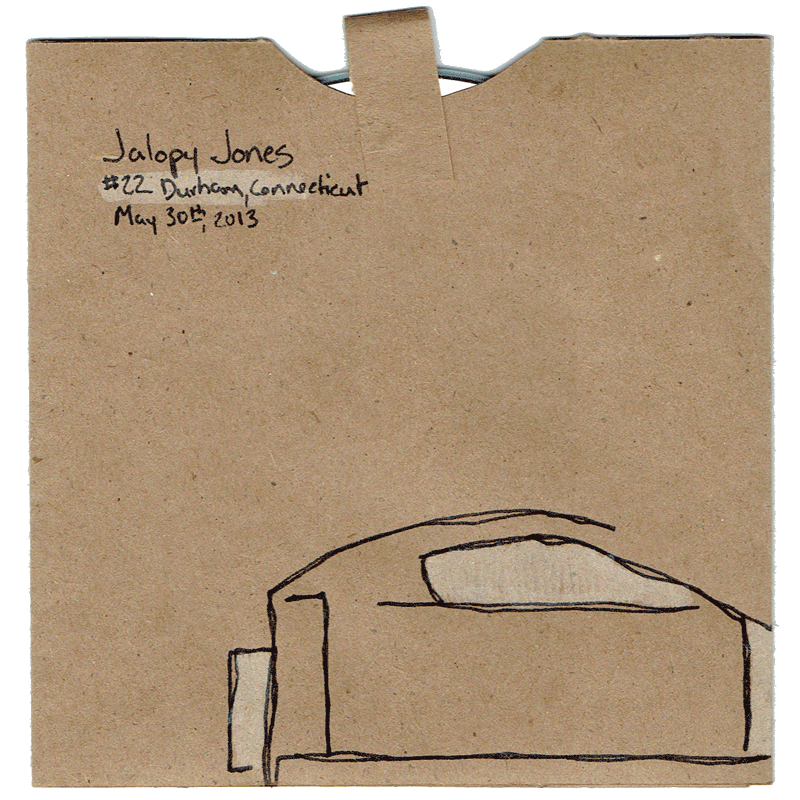 Jalopy Jones
#22 Durham, Connecticut
May 30th, 2013